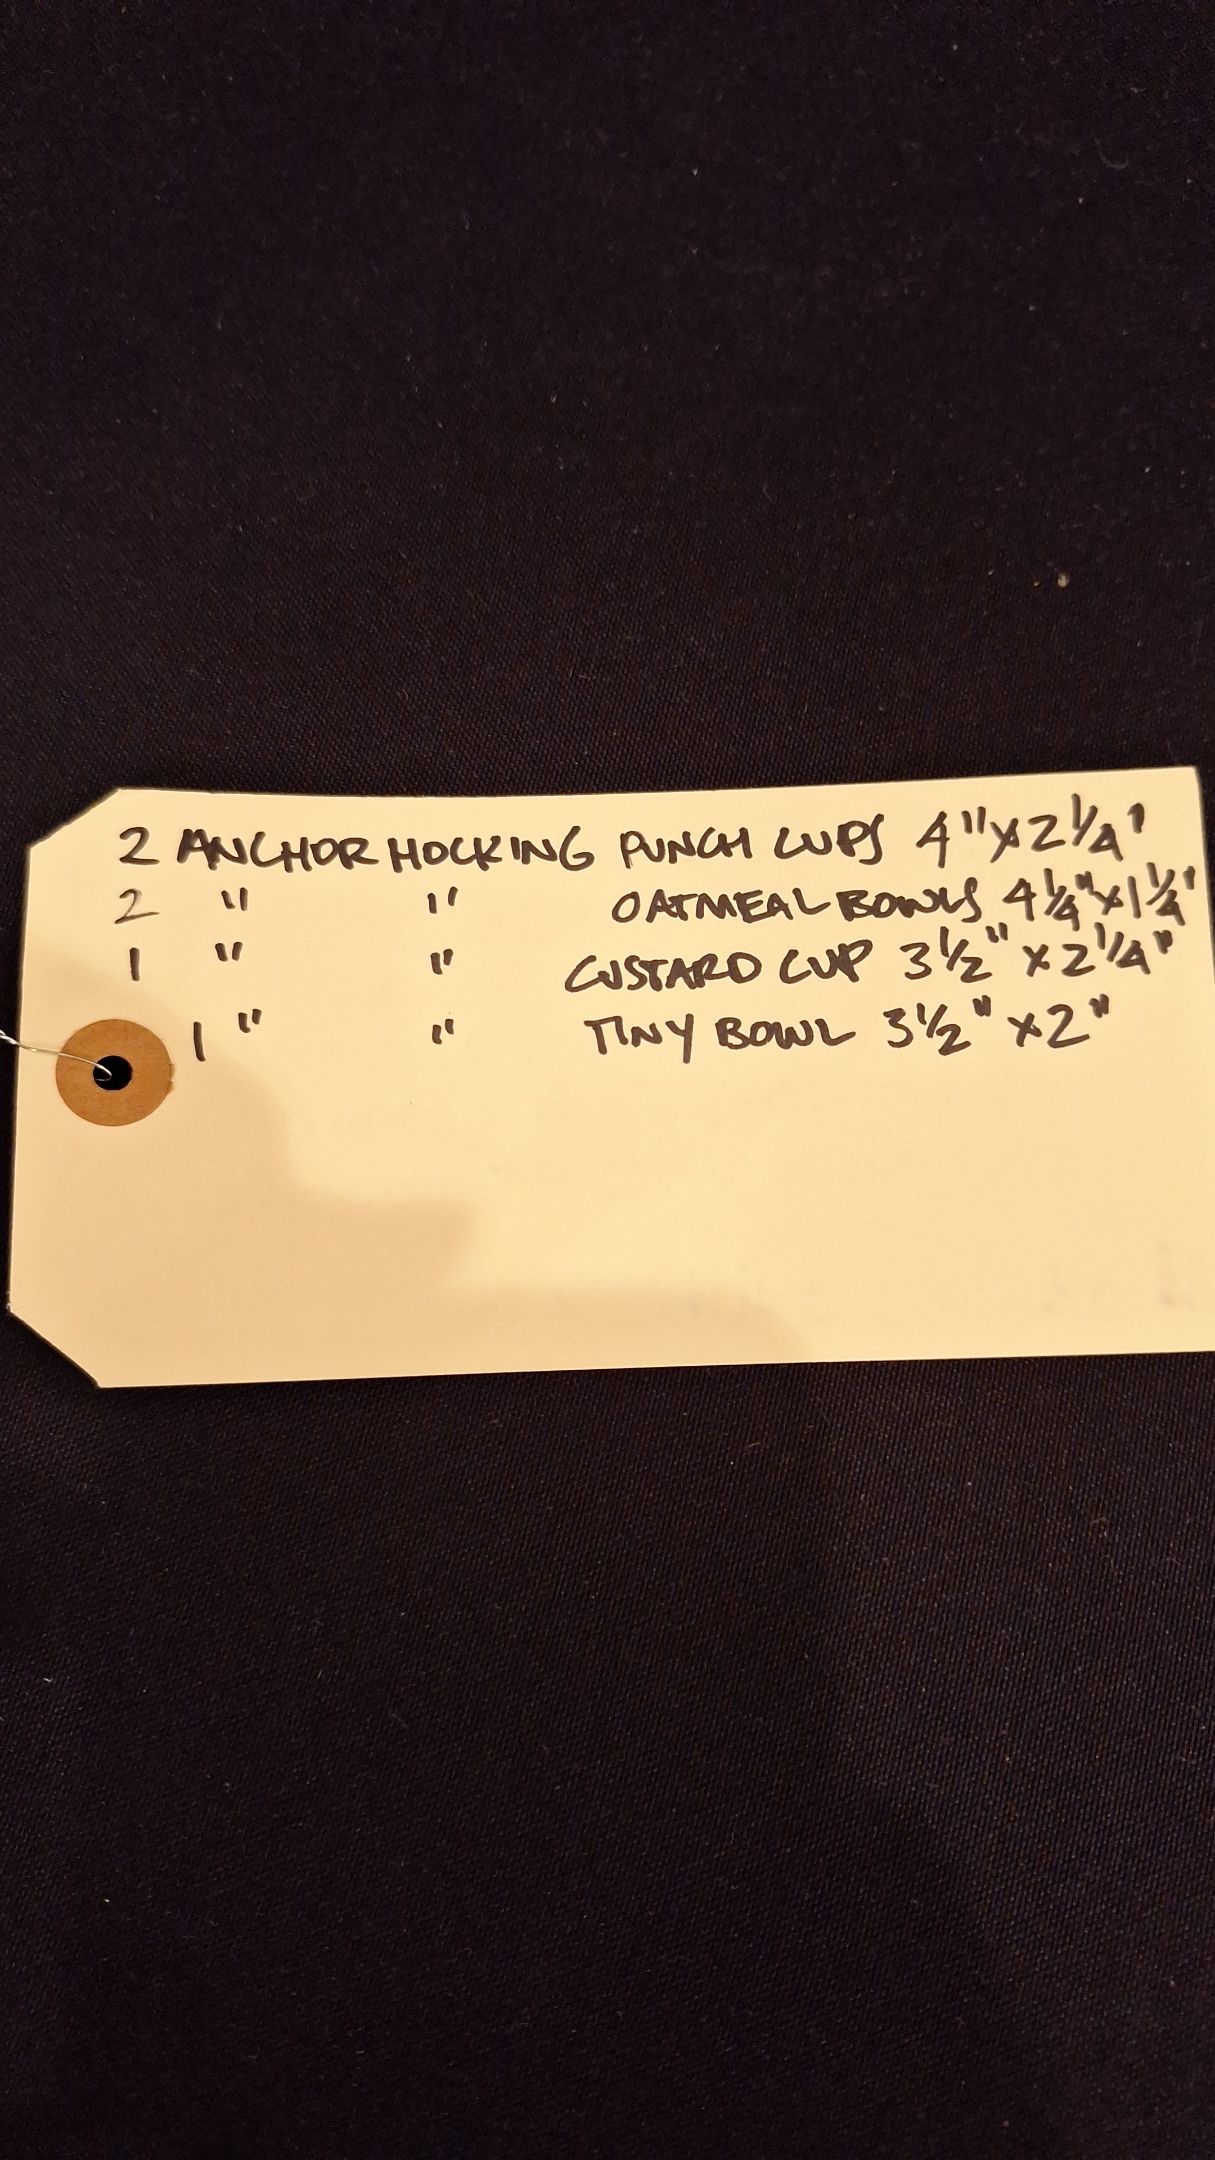 2 ANCHOR HOCKING PUNCH CUPS 4"x2¼'
2 " " OATMEAL BOWLS 4¼"x1¼"
1 " " CUSTARD CUP 3½" x2¼"
1 " " TINY BOWL 3½" x2"